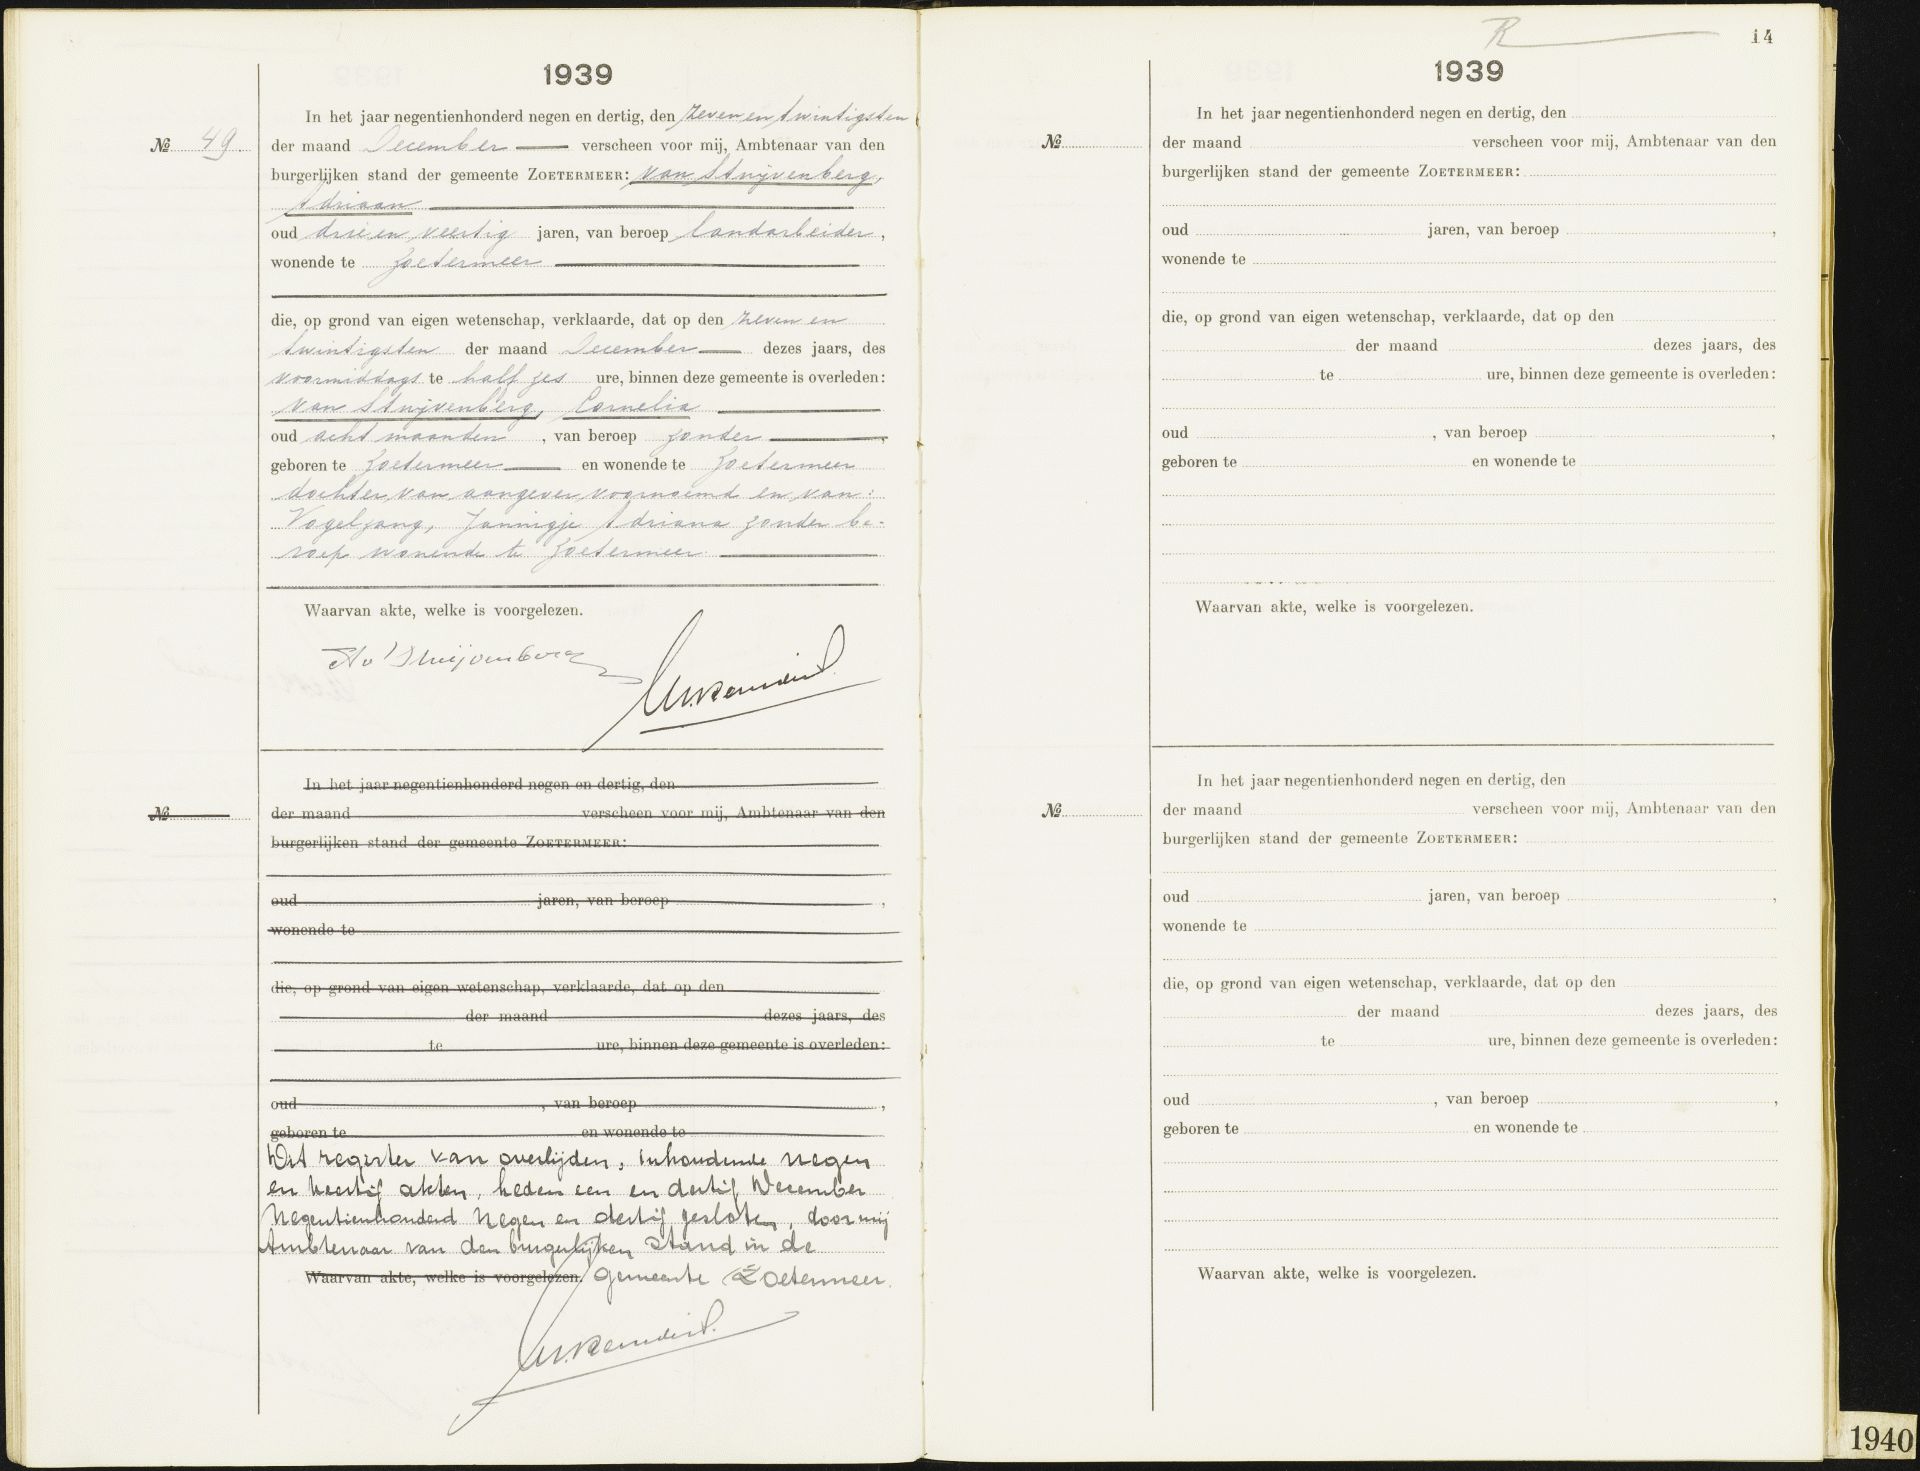 1939
In het jaar negentienhonderd negen en dertig, den zeven en twintigsten
№ 49.
der maand December verscheen voor mij, Ambtenaar van den
burgerlijken stand der gemeente ZOETERMEER: van Stuijvenberg,
Adriaan
oud drie en veertig jaren, van beroep landarbeider,
wonende te Zoetermeer
die, op grond van eigen wetenschap, verklaarde, dat op den zeven en
twintigsten der maand December dezes jaars, des
voormiddags te half zes ure, binnen deze gemeente is overleden:
van Stuijvenberg, Cornelia
oud acht maanden, van beroep zonder,
geboren te Zoetermeer en wonende te Zoetermeer
dochter van aangever voornoemd en van:
Vogelzang, Jannigje Adriana zonder be-
roep wonende te Zoetermeer
Waarvan akte, welke is voorgelezen.
Av Stuijvenberg
In het jaar negentienhonderd negen en dertig, den
№
der maand verscheen voor mij, Ambtenaar van den
burgerlijken stand der gemeente ZOETERMEER:
oud jaren, van beroep ,
wonende te
die, op grond van eigen wetenschap, verklaarde, dat op den
der maand dezes jaars, des
te ure, binnen deze gemeente is overleden:
oud , van beroep ,
geboren te en wonende te
Dit register van overlijden, inhoudende negen
en veertig akten, heden een en dertig December
negentienhonderd negen en dertig gesloten, door mij
Ambtenaar van den burgerlijken stand in de
Waarvan akte, welke is voorgelezen. gemeente Zoetermeer.
R
14
1939
In het jaar negentienhonderd negen en dertig, den
№
der maand verscheen voor mij, Ambtenaar van den
burgerlijken stand der gemeente ZOETERMEER:
oud jaren, van beroep ,
wonende te
die, op grond van eigen wetenschap, verklaarde, dat op den
der maand dezes jaars, des
te ure, binnen deze gemeente is overleden:
oud , van beroep ,
geboren te en wonende te
Waarvan akte, welke is voorgelezen.
In het jaar negentienhonderd negen en dertig, den
№
der maand verscheen voor mij, Ambtenaar van den
burgerlijken stand der gemeente ZOETERMEER:
oud jaren, van beroep ,
wonende te
die, op grond van eigen wetenschap, verklaarde, dat op den
der maand dezes jaars, des
te ure, binnen deze gemeente is overleden:
oud , van beroep ,
geboren te en wonende te
Waarvan akte, welke is voorgelezen.
1940